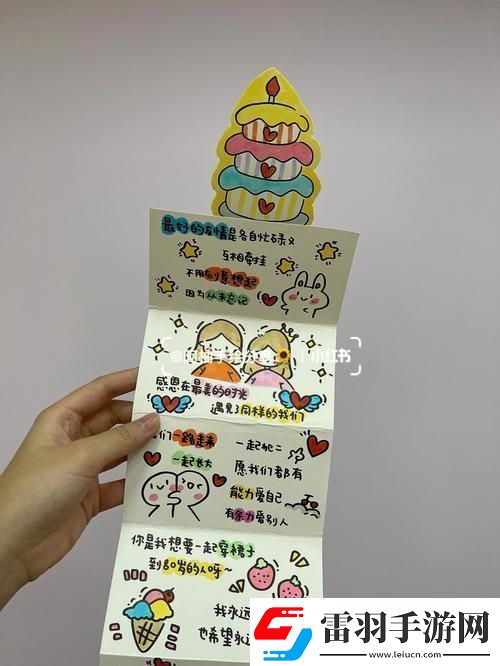 最好的友情是各自忙碌又
互相牵挂
不用刻意想起
因为从未忘记
小红书
感恩在最美的时光
遇见了同样的我们
我们一路走来
一起长大
一起死二
愿我们都有
能力爱自己
有余力爱别人
你是我想要一起穿裙子
到80岁的人呀~
我永远
也希望永远
雷羽手游网
www.leiucn.com